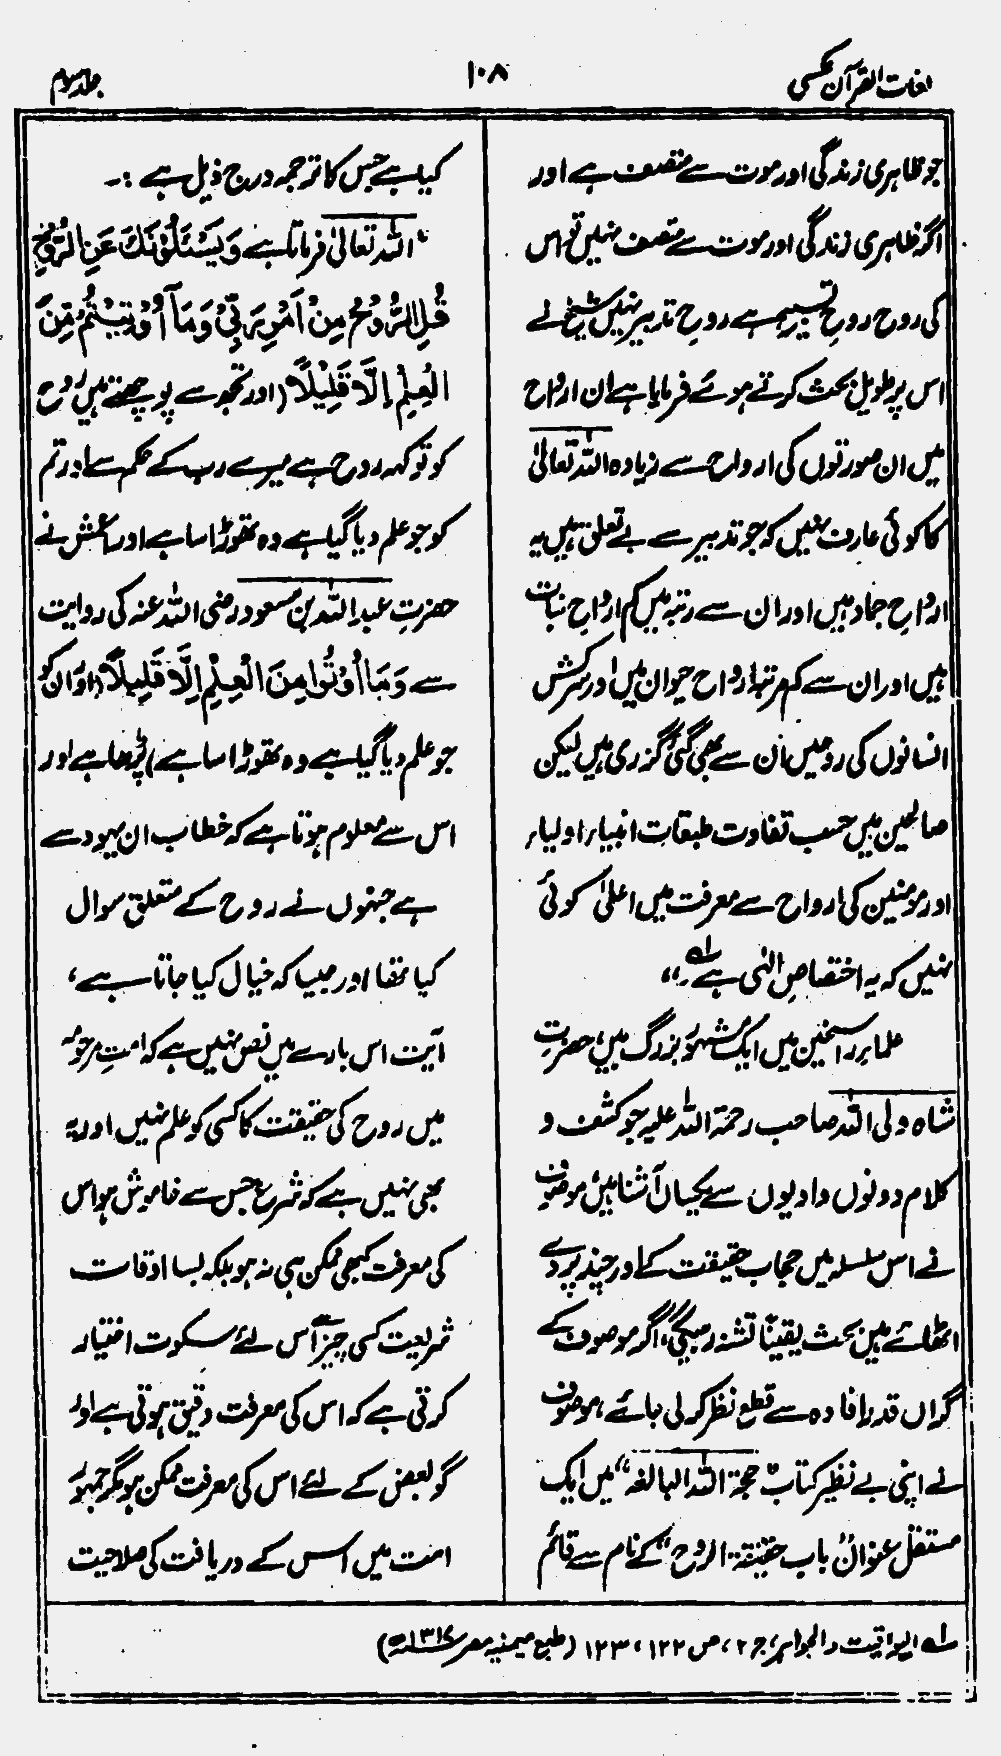 لغات القرآن عکسی
۱۰۸
جلد سوم
جو ظاہری زندگی اور موت سے متصف ہے اور
اگر ظاہری زندگی اور موت سے متصف نہیں تو اس
کی روح روحِ تسییر ہے روحِ تدبیر نہیں شیخ نے
اس پر طویل بحث کرتے ہوئے فرمایا ہے ان ارواح
میں ان صورتوں کی ارواح سے زیادہ اللہ تعالیٰ
کا کوئی عارف نہیں کہ جو تدبیر سے بے تعلق ہیں یہ
ارواحِ جماد ہیں اور ان سے رتبہ میں کم ارواحِ نبات
ہیں اور ان سے کم مرتبہ ارواحِ حیوان ہیں اور سرکش
انسانوں کی روحیں ان سے بھی گئی گزری ہیں لیکن
صالحین میں حسب تفاوت طبقات انبیاء اولیاء
اور مومنین کی ارواح سے معرفت میں اعلیٰ کوئی
نہیں کہ یہ اختصاصِ الٰہی ہے ؎۱،،
علماءِ راسخین میں ایک مشہور بزرگ ہیں، حضرت
شاہ ولی اللہ صاحب رحمۃ اللہ علیہ جو کشف و
کلام دونوں وادیوں سے یکساں آشنا ہیں، موصوف
نے اس سلسلہ میں حجابِ حقیقت کے اور چند پردے
اٹھائے ہیں بحث یقیناً تشنہ رہیگی، اگر موصوف کے
گراں قدر افادہ سے قطع نظر کر لی جائے، موصوف
نے اپنی بے نظیر کتاب "حجۃ اللہ البالغہ" میں ایک
مستقل عنوان باب حقیقۃ الروح" کے نام سے قائم
کیا ہے جس کا ترجمہ درج ذیل ہے :۔
"اللہ تعالیٰ فرماتا ہے وَيَسْئَلُوْنَكَ عَنِ الرُّوْحِ
قُلِ الرُّوْحُ مِنْ اَمْرِ رَبِّيْ وَمَآ اُوْتِيْتُمْ مِّنَ
الْعِلْمِ اِلَّا قَلِيْلًا (اور تجھ سے پوچھتے ہیں روح
کو تو کہہ روح ہے میرے رب کے حکم سے اور تم
کو جو علم دیا گیا ہے وہ تھوڑا سا ہے اور اعمش نے
حضرت عبداللہ بن مسعود رضی اللہ عنہ کی روایت
سے وَمَآ اُوْتُوْا مِنَ الْعِلْمِ اِلَّا قَلِيْلًا (اور ان کو
جو علم دیا گیا ہے وہ تھوڑا سا ہے) پڑھا ہے اور
اس سے معلوم ہوتا ہے کہ خطاب ان یہود سے
ہے جنہوں نے روح کے متعلق سوال
کیا تھا اور جیسا کہ خیال کیا جاتا ہے،
آیت اس بارے میں نص نہیں ہے کہ امتِ مرحومہ
میں روح کی حقیقت کا کسی کو علم نہیں اور یہ
بھی نہیں ہے کہ شرع جس سے خاموش ہو اس
کی معرفت کبھی ممکن ہی نہ ہو بلکہ بسا اوقات
شریعت کسی چیز سے اس لئے سکوت اختیار
کرتی ہے کہ اس کی معرفت دقیق ہوتی ہے اور
گو بعض کے لئے اس کی معرفت ممکن ہو مگر جمہور
امت میں اس کے دریافت کی صلاحیت
؎۱ الیواقیت والجواہر، ج ۲، ص ۱۲۲، ۱۲۳ (طبع میمنیہ مصر ۱۳۱۷ھ)